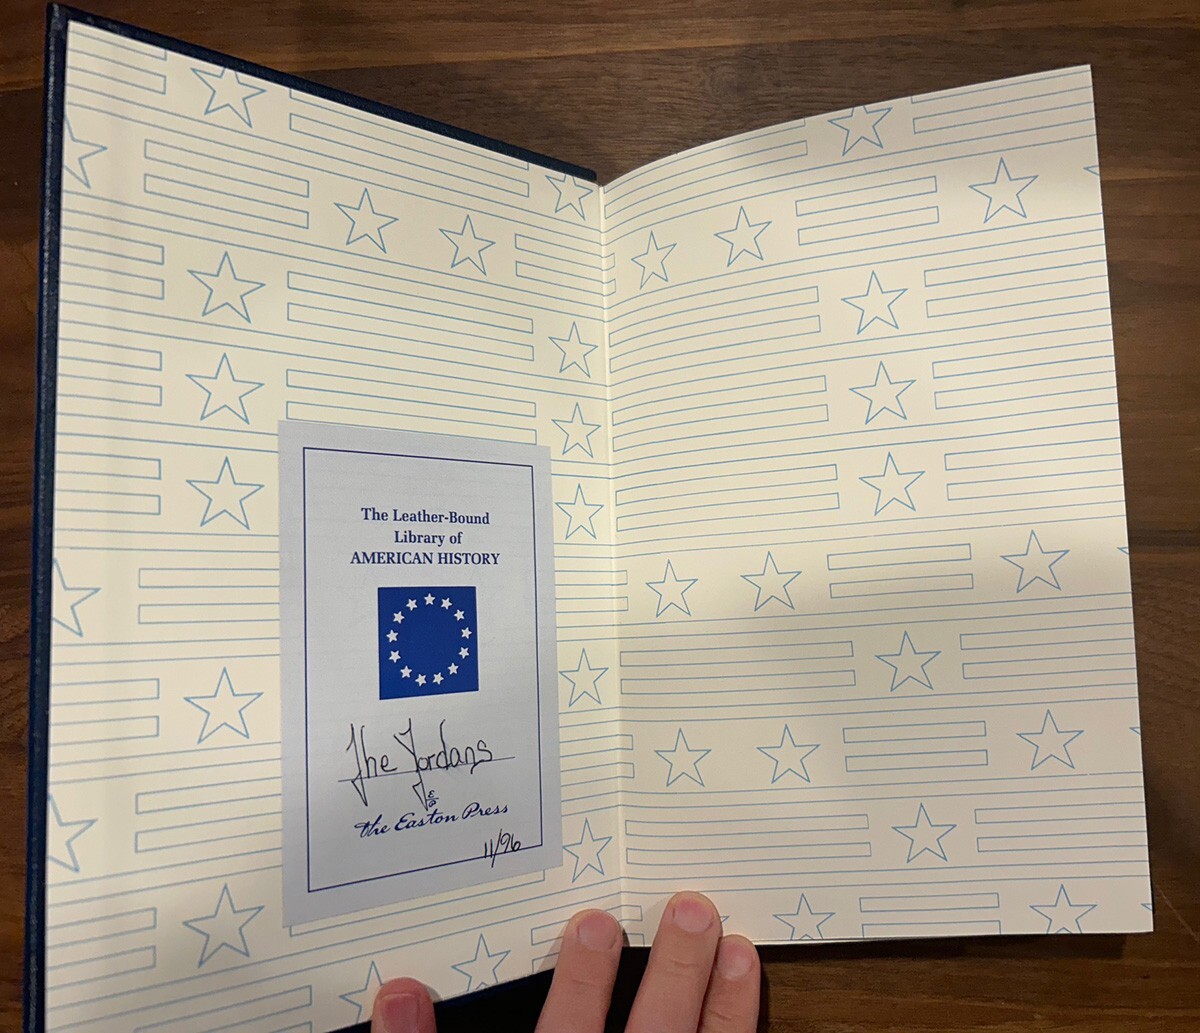 The Leather-Bound
Library of
AMERICAN HISTORY
The Jordans
the Easton Press
11/96